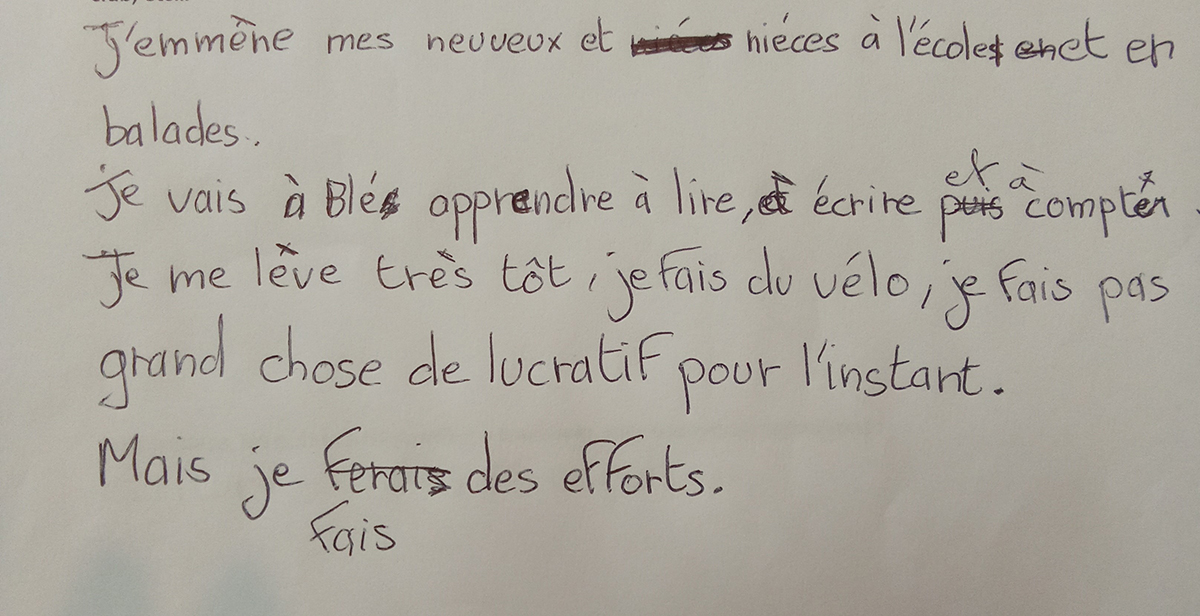 J'emmène mes neuveux et niéces à l'école et en
balades.
Je vais à Blés apprendre à lire, à écrire et à compter.
Je me lève très tôt, je fais du vélo, je fais pas
grand chose de lucratif pour l'instant.
Mais je fais des efforts.